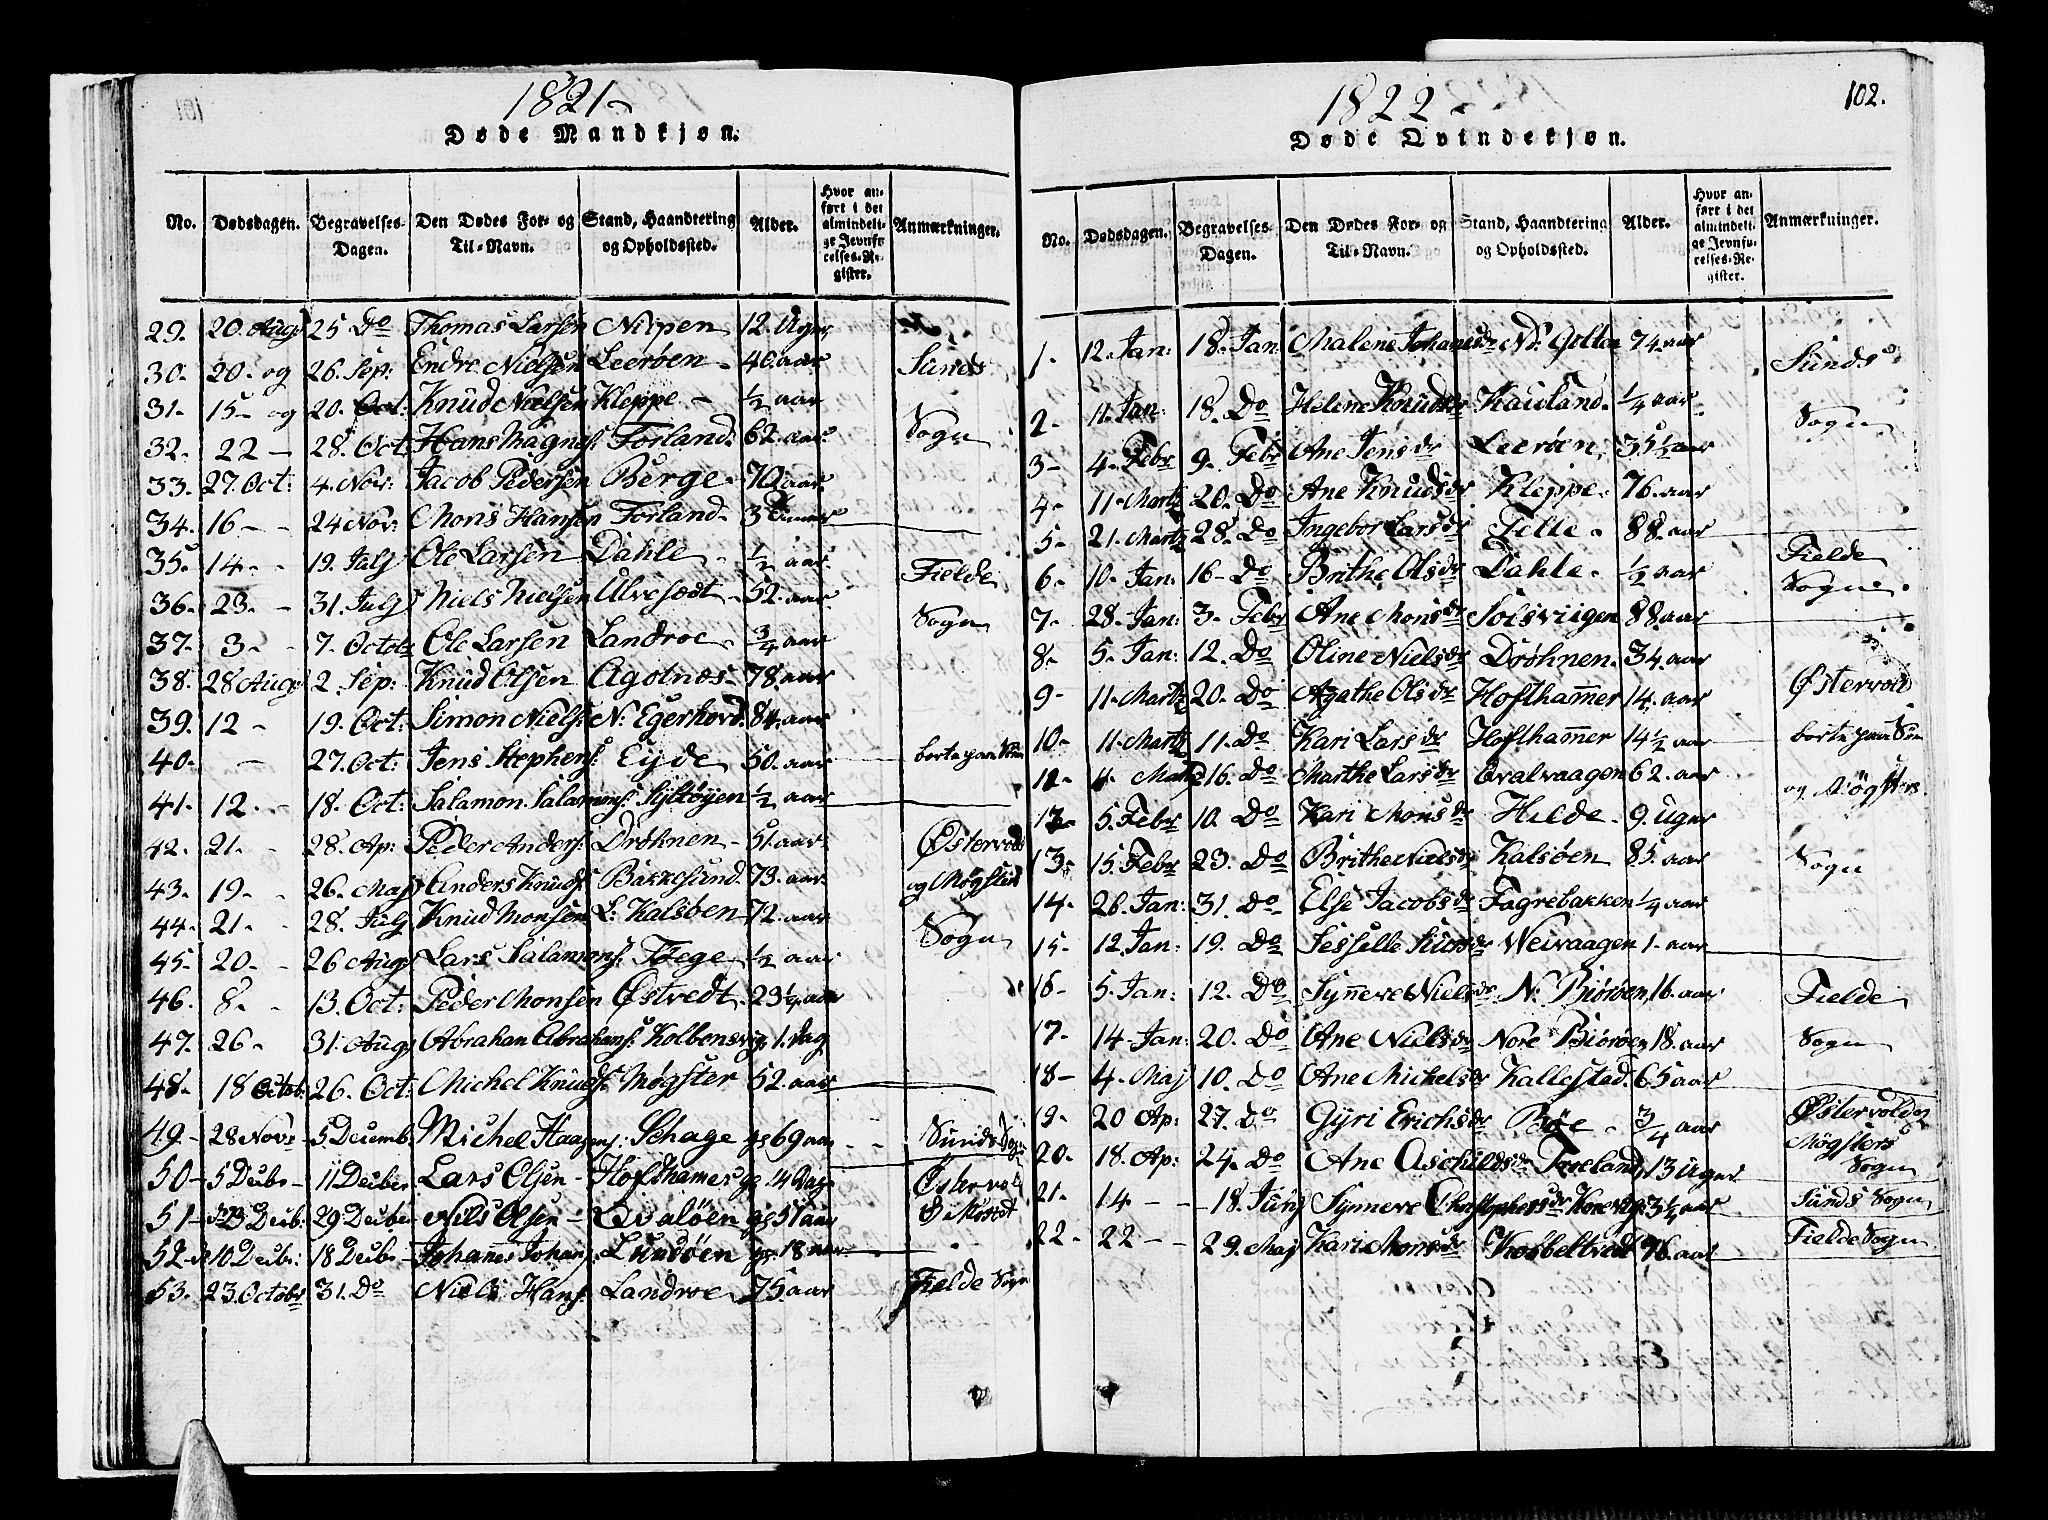 1821-
Døde Mandkjøn.
No. Dødsdagen. Begravelses-Dagen. Den Dødes For- og Til-Navn. Stand, Haandtering og Opholdssted. Alder. Hvor anført i det almindelige Jevnførelses-Register. Anmærkninger.
29. 20 Augs 25 Do Thomas Larsen Nipen 12. Uger
30. 20- og 26. Sep: Endre Nielsen Leerøen - 40. aar Sunds
31. 15- og 20. Oct: Knud Nielsen Kleppe - ½ aar
32. 22 - 28. Oct Hans Magnes: Forland. 62. aar Sogn
33. 27. Oct: 4. Nov: Jacob Pedersen Berge - 70 aar
34. 16 - - 24 Nov: Mons Hansen Forland -
35. 14 - - 19. Julj Ole Larsen Dahle - ½ aar. Fielde
36. 23. - 31. Julj Niels Nielsen Ulvesædt - 52. aar Sogn
37. 3 - - 7. Octobr Ole Larsen Landroe - ¾ aar
38. 28 Augs 2. Sep: Knud Olsen Agotnæs - 78. aar
39. 12 - 19. Oct: Simon Niels: N: Egerhovd. 84. aar
40. - - 27. Oct: Jens Stephens: Eyde 50. aar borte paa Søen
41. 12. - 18. Oct: Salamon Salamons: Syltøyen ½ aar
42. 21. - 28. Ap: Peder Anders: Drøhnen - 51. aar. Østervolds
43. 19 - - 26. Maj Anders Knuds: Bakkesund. 73. aar og Møgsters
44. 21. - 28. Julj Knud Monsen L: Kalsøen 72. aar Sogn
45. 20. - 26 Augs Lars Salamons: Tøege ½ aar
46. 8. - 13. Oct: Peder Monsen Østvedt. 23½ aar
47. 26 - 31. Augs Abrahan Abrahams: Kolbensvig 1. Dag
48. 18 Octob: 26. Oct: Michel Knuds: Møgster 52. aar
49. 28 Novr 5 Decemb: Michel Haagens: Schage gl 69 aar - - Sunds Sogn
50 - 5 Decbr - 11 Decber Lars Olsen - Hofthamer gl. 4 Dage Østervol
51 - Decb: 29 Decber Niels Olsen - Qvaløen gl 51 aar
52 - 10 Decbr: 18 Decbr - Johannes Johans: Lundøen gl. 18 aar
53. 23. Octobr 31. Do Niels Hans: Landroe 75. aar Fielde Sogn
1822 -
102.
Døde Qvindekjøn.
No. Dødsdagen. Begravelses-Dagen. Den Dødes For- og Til-Navn. Stand, Haandtering og Opholdssted. Alder. Hvor anført i det almindelige Jevnførelses-Register. Anmærkninger.
1. 12. Jan: 18. Jan: Malene Johansdr Nd: Golten 74. aar Sunds
2. 11. Jan: 18. Do Helene Knudsdr Kauland. ¼ aar Sogn
3 - 4. Febr 9. Febr Ane Jensdr Leerøen, 35½ aar
4. 11. Martz 20. Do Ane Knudsdr Kleppe. 76. aar
5. 21. Martz 28. Do Ingebor Larsdr Telle. 88. aar
6. 10. Jan: 16 - Do Brithe Olsdr Dahle. ½ aar Fielde Sogn
7. 28. Jan: 3. Febr Ane Monsdr Solsviigen 88. aar
8. 5. Jan: 12. Do Oline Nielsdr Drøhnen. 34. aar
9. 11. Martz 20. Do Agathe Olsdr Hofthammer 14. aar Østervold
10 - 11. Martz 11. Do Kari Larsdr Hofthammer 14½ aar borte paa Søen
11. 11. Martz 16. Do Marthe Larsdr Qvalvaagen 62. aar og Møgsters
12. 5. Febr 10. Do Kari Monsdr Hilde - 9. Uger
13. 15. Febr 23. Do Brithe Nielsdr Kalsøen 85. aar Sogn
14. 26. Jan: 31. Do Else Jacobsdr Fagrebakken ¼ aar
15. 12. Jan: 19. Do Sesselle Simonsdr Weivaagen 1 - aar
16 - 5. Jan: 12. Do Synneve Nielsdr N: Biørøen, 16. aar Fielde
17. 14. Jan: 20. Do Ane Nielsdr Nore Biørøen, 18. aar Sogn
18 - 4. Maj 10. Do Ane Michelsdr Kallestad. 65. aar
19. 20 Ap: 27. Do Gyri Erichsdr Bøe - ¾ aar Østervold og
20. 18. Ap: 24. Do Ane Aschildsdr Troeland, 13 Uger Møgsters Sogn
21. 14 - - 18. Junj Synneve Christophersdr 3¼ aar Sunds Sogn
22. 22 - - 29. Maj Kari Monsdr Kobbeltvedt 76. aar Fielde Sogn